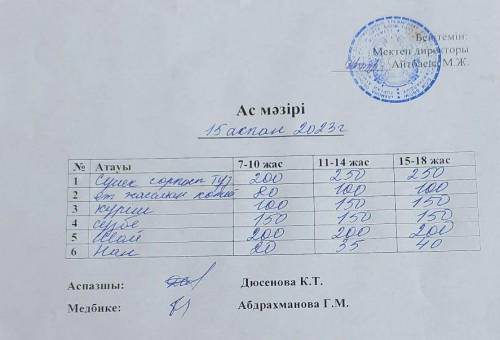 Бекітемін:
Мектеп директоры
М.Ж.
Ас мәзірі
15 аспан 2023г
№ Атауы 7-10 жас 11-14 жас 15-18 жас
1 сорпасы 200 250 250
2 ет 80 100 100
3 күріш 100 150 150
4 сүзбе 150 150 150
5 Шай 200 200 200
6 Нан 20 35 40
Аспазшы: Дюсенова К.Т.
Медбике: Абдрахманова Г.М.